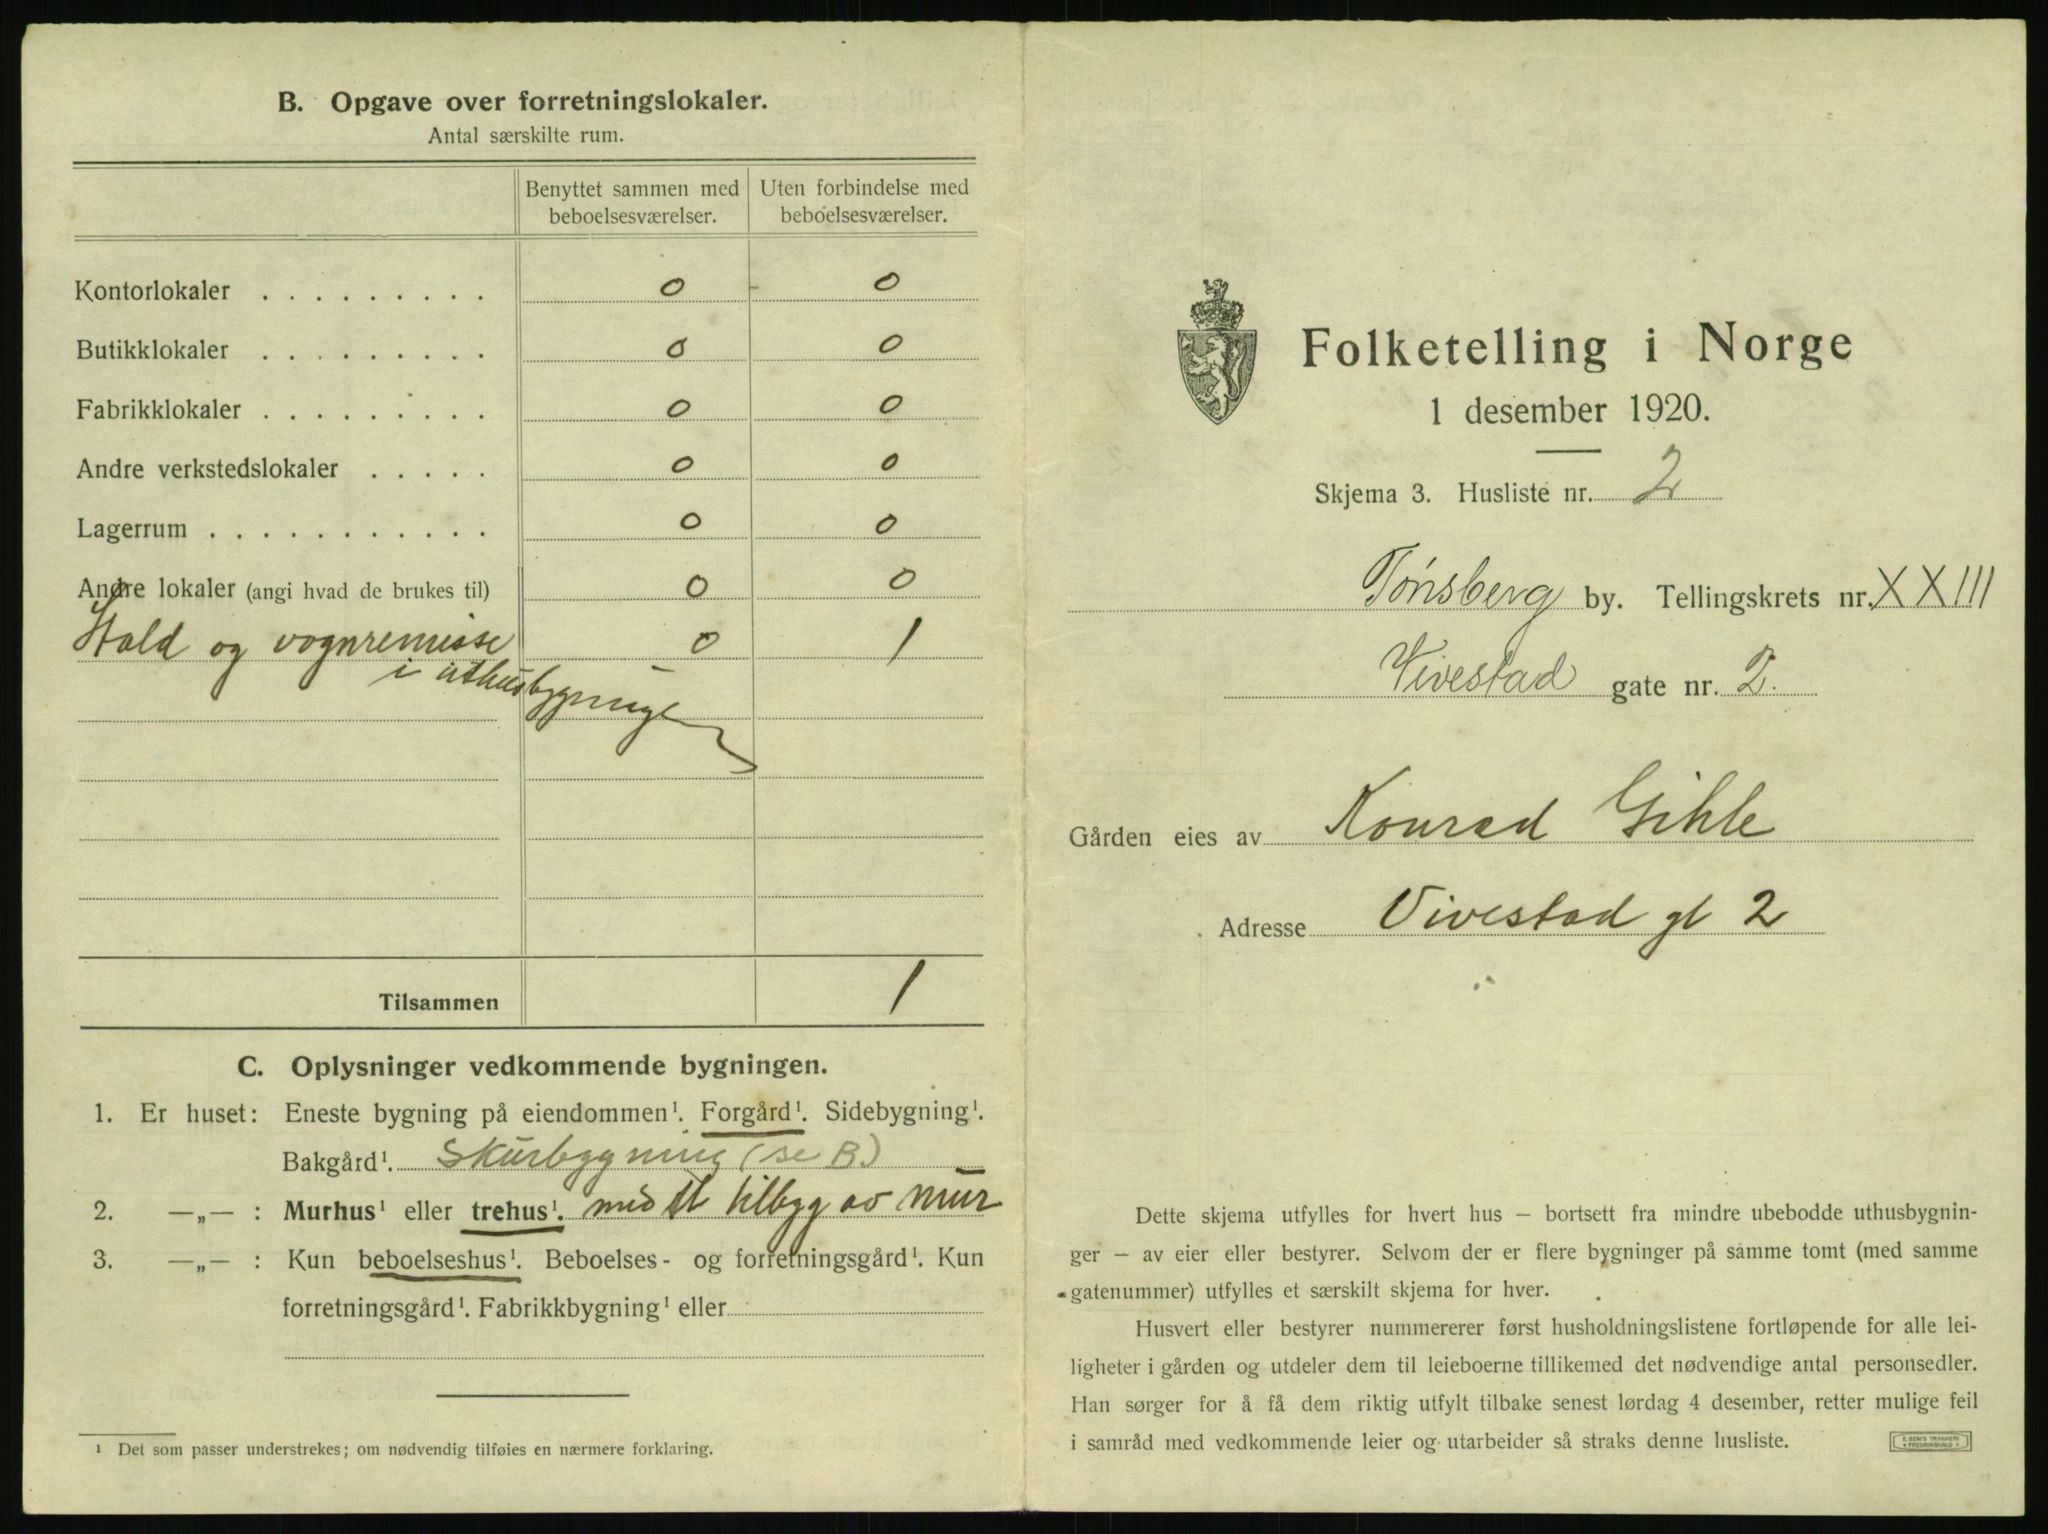 B. Opgave over forretningslokaler.
Antal særskilte rum.
Benyttet sammen med beboelsesværelser.
Uten forbindelse med beboelsesværelser.
Kontorlokaler . . . . . . . . . 0 0
Butikklokaler . . . . . . . . . 0 0
Fabrikklokaler . . . . . . . . . 0 0
Andre verkstedslokaler . . . . . 0 0
Lagerrum . . . . . . . . . . . 0 0
Andre lokaler (angi hvad de brukes til) 0 0
Stald og vognremisse 0 1
i uthusbygningen
Tilsammen 1
C. Oplysninger vedkommende bygningen.
1. Er huset: Eneste bygning på eiendommen¹. Forgård¹. Sidebygning¹.
Bakgård¹. Skurbygning (se B)
2. —„— : Murhus¹ eller trehus¹. med et tilbyg av mur
3. —„— : Kun beboelseshus¹. Beboelses- og forretningsgård¹. Kun
forretningsgård¹. Fabrikkbygning¹ eller
¹ Det som passer understrekes; om nødvendig tilføies en nærmere forklaring.
Folketelling i Norge
1 desember 1920.
Skjema 3. Husliste nr. 2
Tønsberg by. Tellingskrets nr. XXIII
Vivestad gate nr. 2.
Gården eies av Konrad Gihle
Adresse Vivestad gt 2
Dette skjema utfylles for hvert hus – bortsett fra mindre ubebodde uthusbygnin-
ger – av eier eller bestyrer. Selvom der er flere bygninger på samme tomt (med samme
gatenummer) utfylles et særskilt skjema for hver.
Husvert eller bestyrer nummererer først husholdningslistene fortløpende for alle lei-
ligheter i gården og utdeler dem til leieboerne tillikemed det nødvendige antal personsedler.
Han sørger for å få dem riktig utfylt tilbake senest lørdag 4 desember, retter mulige feil
i samråd med vedkommende leier og utarbeider så straks denne husliste.
E. SEM'S TRYKKERI
FREDRIKSHALD